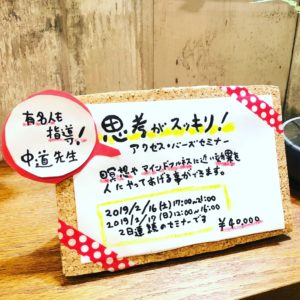 有名人も
指導!
中道先生
思考がスッキリ!
アクセス・バーズセミナー
瞑想やマインドフルネスに近い効果を
人にやってあげる事ができます。
2019/2/16(土)17:00~21:00
2019/2/17(日)12:00~16:00
2日連続のセミナーです
¥40,000